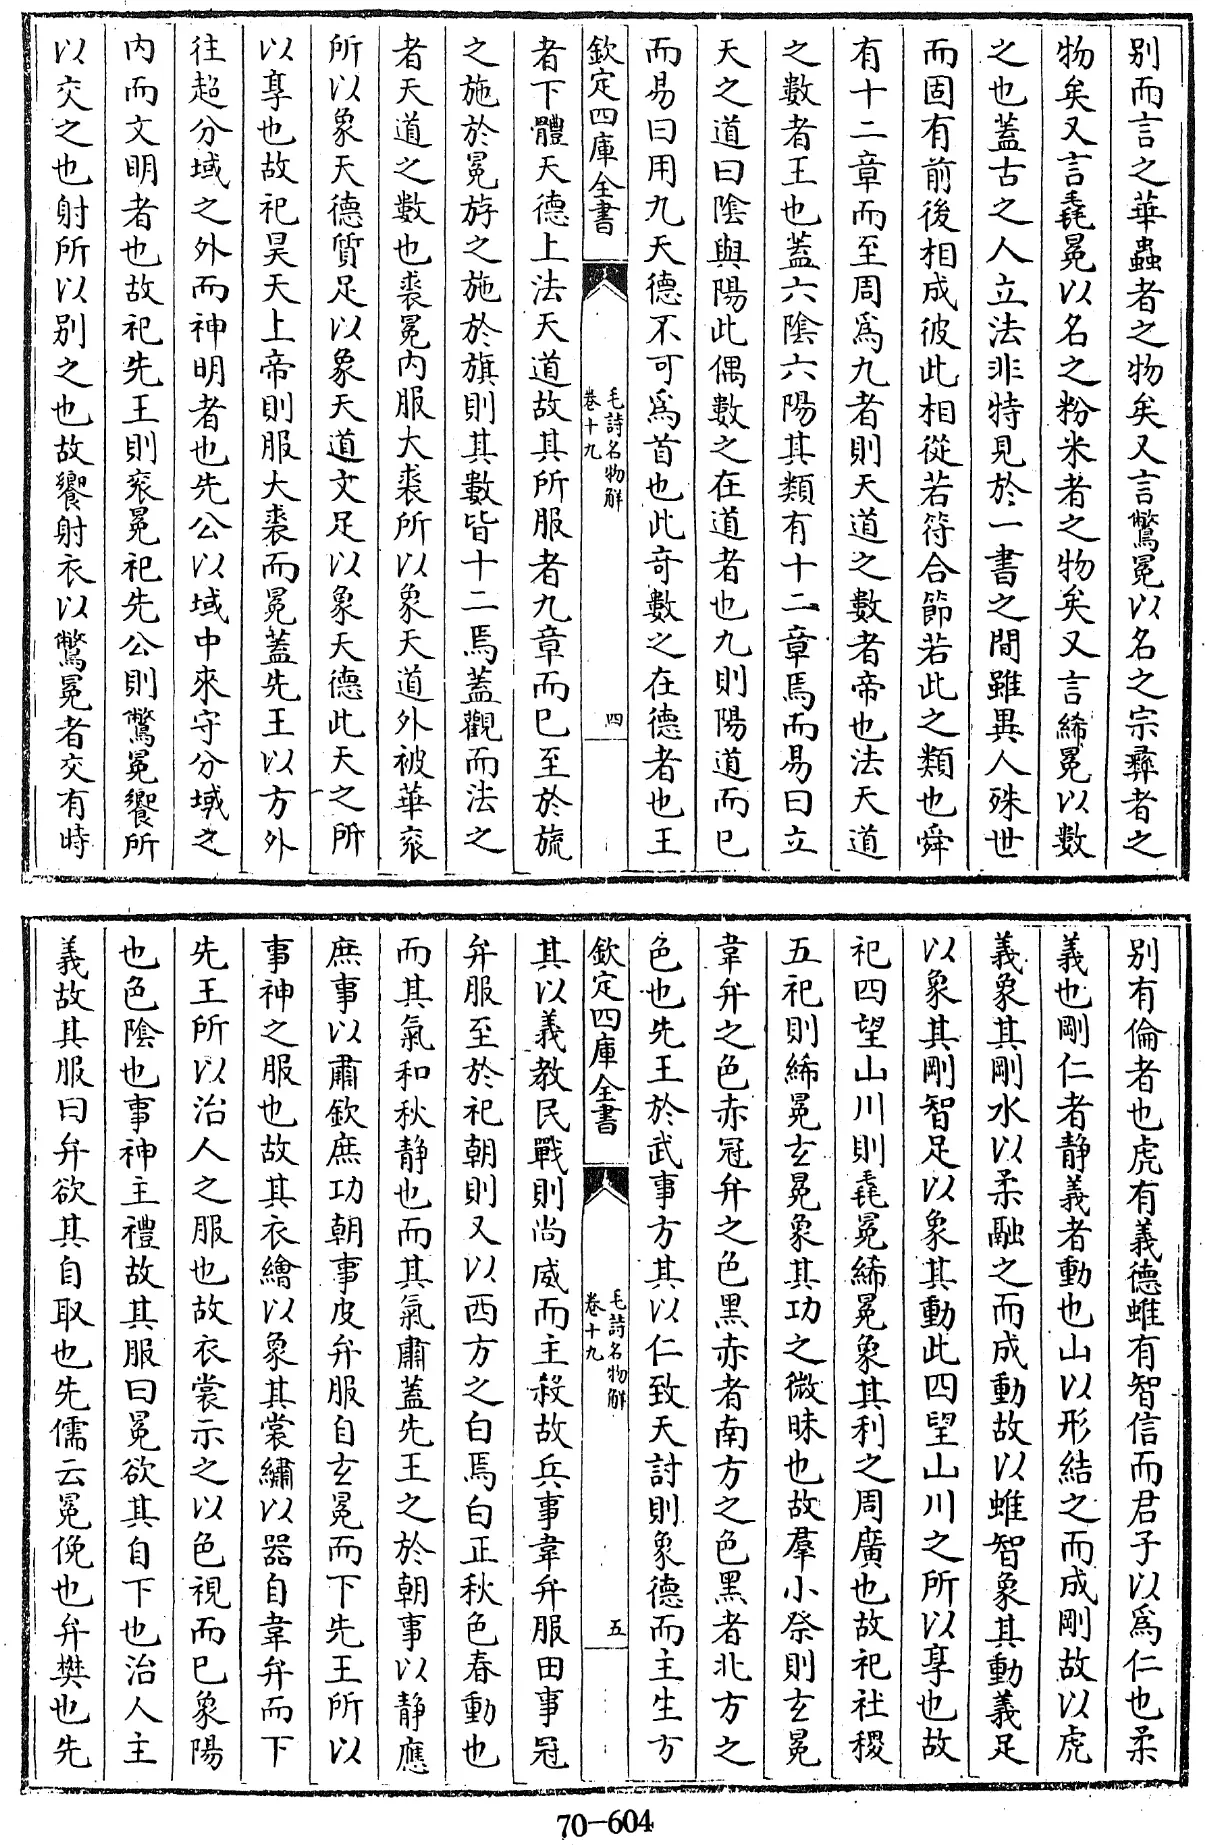 别而言之華蟲者之物矣又言鷩冕以名之宗彞者之
物矣又言毳冕以名之粉米者之物矣又言絺冕以數
之也蓋古之人立法非特見於一書之間雖異人殊世
而固有前後相成彼此相從若符合節若此之類也舜
有十二章而至周爲九者則天道之數者帝也法天道
之數者王也蓋六陰六陽其類有十二章焉而易曰立
天之道曰陰與陽此偶數之在道者也九則陽道而已
而易曰用九天德不可爲首也此奇數之在德者也王
欽定四庫全書
毛詩名物解
卷十九
四
者下體天德上法天道故其所服者九章而已至於旒
之施於冕斿之施於旗則其數皆十二焉蓋觀而法之
者天道之數也裘冕内服大裘所以象天道外被華衮
所以象天德質足以象天道文足以象天德此天之所
以享也故祀昊天上帝則服大裘而冕蓋先王以方外
往超分域之外而神明者也先公以域中來守分域之
内而文明者也故祀先王則衮冕祀先公則鷩冕饗所
以交之也射所以别之也故饗射衣以鷩冕者交有時
别有倫者也虎有義德蜼有智信而君子以爲仁也柔
義也剛仁者静義者動也山以形結之而成剛故以虎
義象其剛水以柔融之而成動故以蜼智象其動義足
以象其剛智足以象其動此四望山川之所以享也故
祀四望山川則毳冕絺冕象其利之周廣也故祀社稷
五祀則絺冕玄冕象其功之微昧也故羣小祭則玄冕
韋弁之色赤冠弁之色黑赤者南方之色黑者北方之
色也先王於武事方其以仁致天討則象德而主生方
欽定四庫全書
毛詩名物解
卷十九
五
其以義教民戰則尚威而主殺故兵事韋弁服田事冠
弁服至於祀朝則又以西方之白焉白正秋色春動也
而其氣和秋静也而其氣肅蓋先王之於朝事以静應
庶事以肅欽庶功朝事皮弁服自玄冕而下先王所以
事神之服也故其衣繪以象其裳繡以器自韋弁而下
先王所以治人之服也故衣裳示之以色視而已象陽
也色陰也事神主禮故其服曰冕欲其自下也治人主
義故其服曰弁欲其自取也先儒云冕俛也弁樊也先
70-604